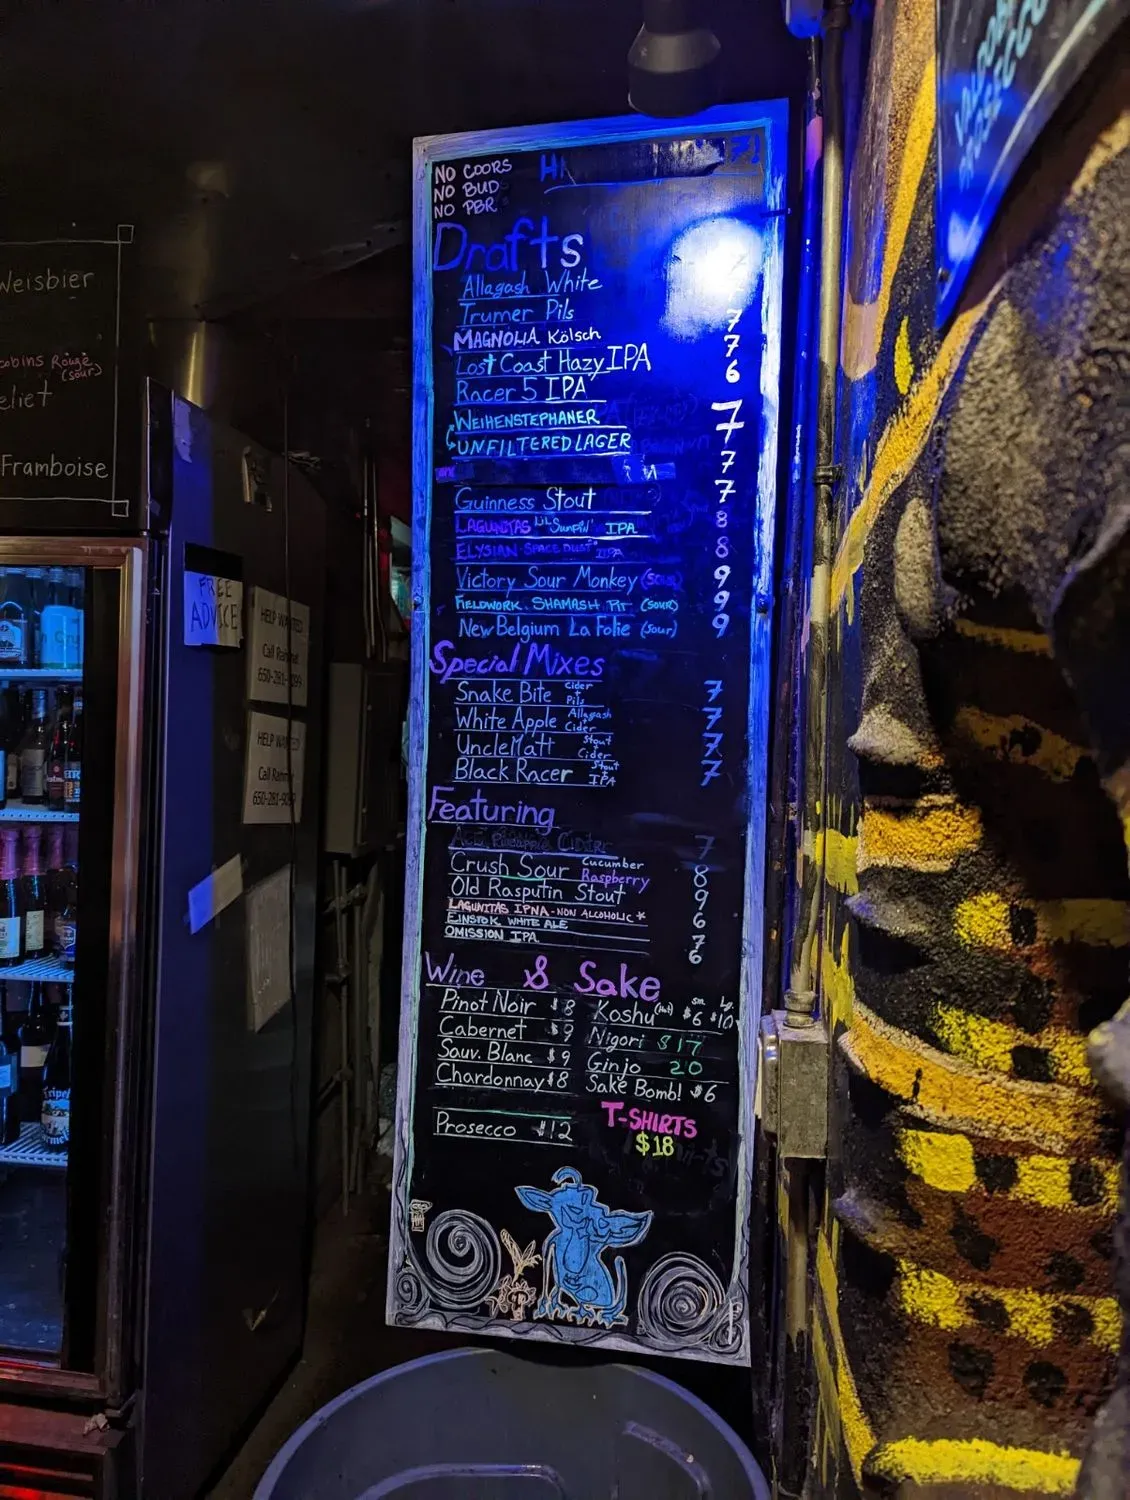 NO COORS
NO BUD
NO PBR
Drafts
Allagash White 7
Trumer Pils 7
MAGNOLIA Kölsch 7
Lost Coast Hazy IPA 6
Racer 5 IPA 7
WEIHENSTEPHANER
UNFILTERED LAGER 7
Guinness Stout 7
LAGUNITAS LIL Sumpin' IPA 8
ELYSIAN SPACE DUST IPA 8
Victory Sour Monkey (SOUR) 9
FIELDWORK SHAMASH PIT (SOUR) 9
New Belgium La Folie (Sour) 9
Special Mixes
Snake Bite Cider + Pils 7
White Apple Allagash Cider 7
Uncle Matt Stout Cider 7
Black Racer Stout + IPA 7
Featuring
ACE Pineapple CIDER 7
Crush Sour Cucumber Raspberry 8
Old Rasputin Stout 9
LAGUNITAS IPNA - NON ALCOHOLIC * 6
EINSTOK WHITE ALE 7
OMISSION IPA 6
Wine & Sake
Pinot Noir $8
Cabernet $9
Sauv. Blanc $9
Chardonnay $8
Prosecco $12
sm Lg.
Koshu (Hot) $6 $10
Nigori $17
Ginjo 20
Sake Bomb! $6
T-SHIRTS
$18
Weisbier
Rouge
(sour)
Framboise
FREE
ADVICE
HELP WANTED
Call
HELP WANTED
Call
PROSECCO